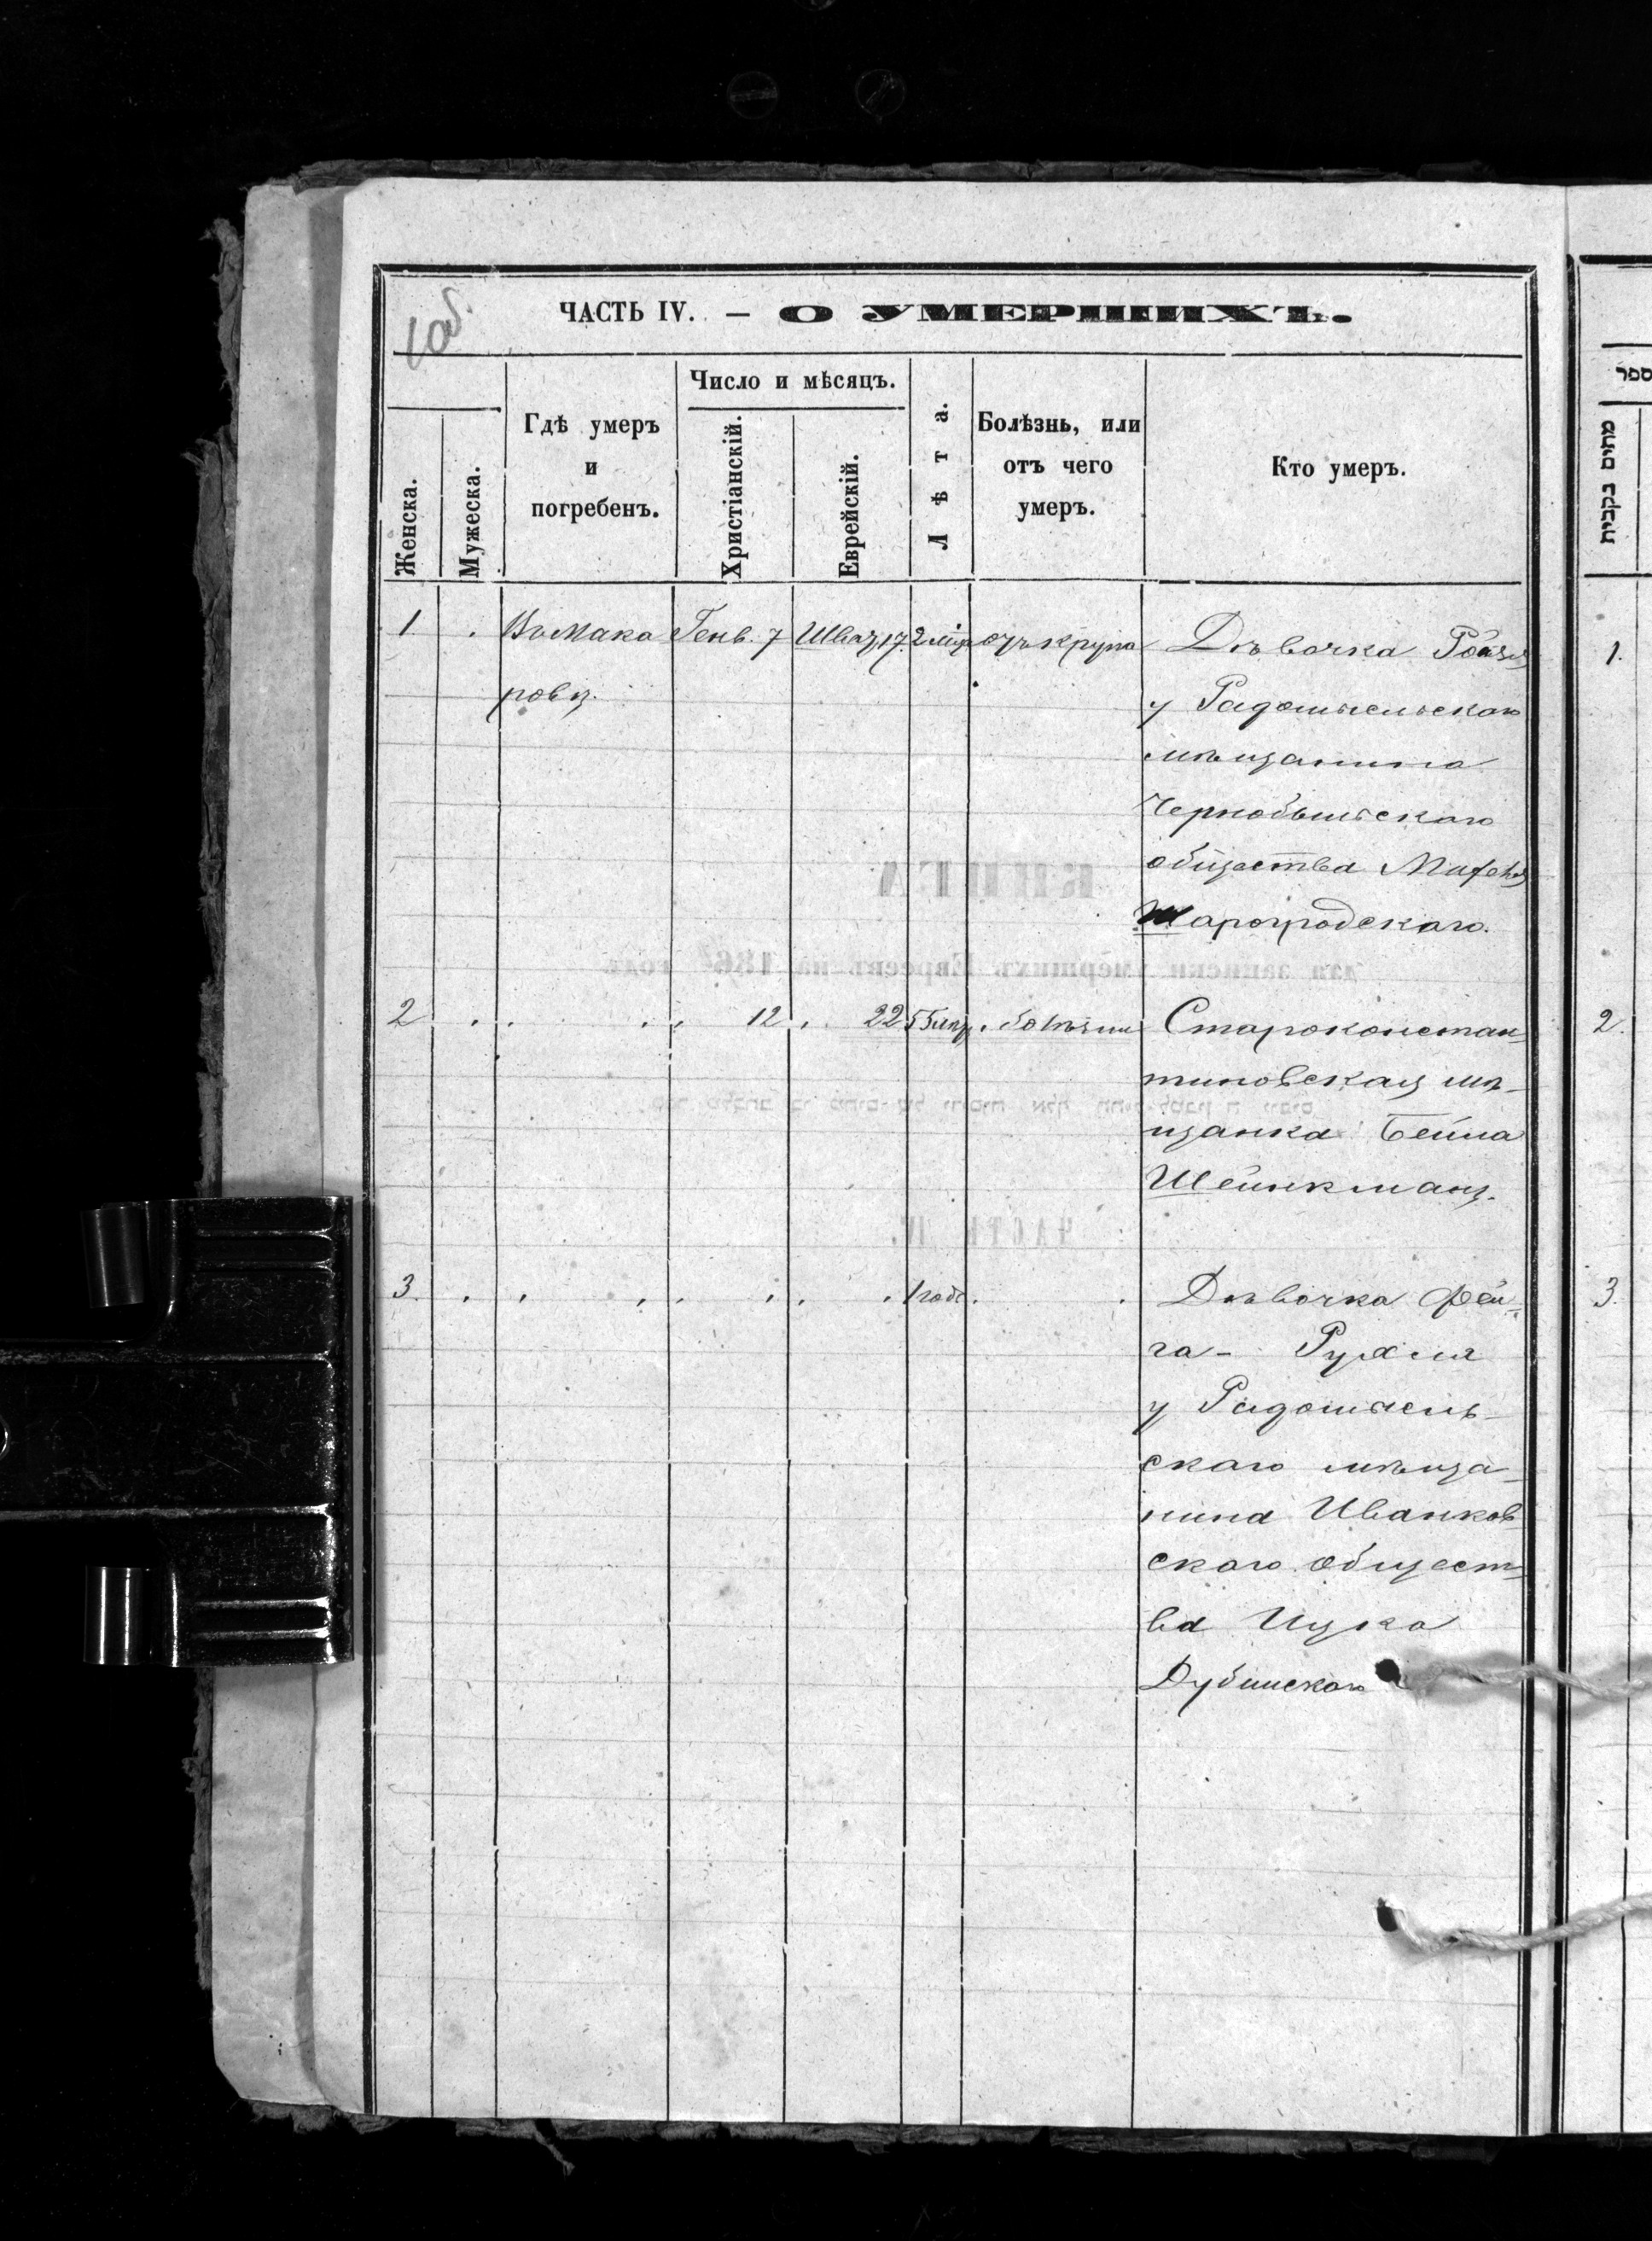 1 об.
ЧАСТЬ IV. — О УМЕРШИХЪ.
Женска.
Мужеска.
Гдѣ умеръ
и
погребенъ.
Число и мѣсяцъ.
Христіанскій.
Еврейскій.
Лѣта.
Болѣзнь, или
отъ чего
умеръ.
Кто умеръ.
1. Въ Мака Генв. 7 Шват 17. 2 отъ крупа Дѣвочка
ровѣ. у Радомысльскаго
мѣщанина
Чернобыльскаго
общества
Шарогродскаго.
2 12 22 55 Староконстан-
тиновская мѣ-
щанка Бейла
Шейнкманъ.
3. 1 годъ Дѣвочка Фей-
га - Рухля
у Радомысль-
скаго мѣща-
нина Иванков
скаго общест-
ва Ицка
Дубинскаго
ספר
מתים נקבות
1.
2.
3.
КНИГА
для записки умершихъ Евреевъ на 186 годъ
ЧАСТЬ IV.